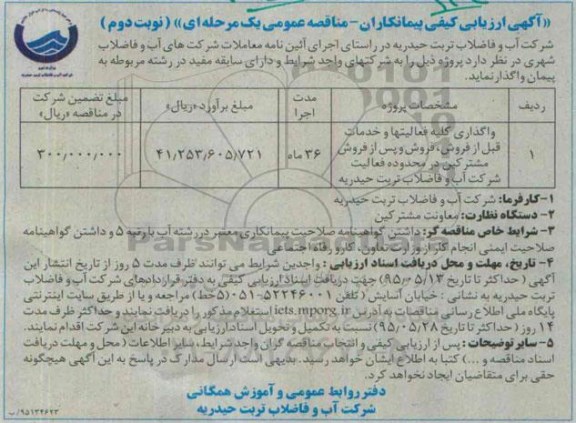 «آگهی ارزیابی کیفی پیمانکاران- مناقصه عمومی یک مرحله ای» (نوبت دوم)
شرکت آب و فاضلاب تربت حیدریه در راستای اجرای آئین نامه معاملات شرکت های آب و فاضلاب
شهری در نظر دارد پروژه ذیل را به شرکتهای واجد شرایط و دارای سابقه مفید در رشته مربوطه به
پیمان واگذار نماید.
ردیف
مشخصات پروژه
مدت اجرا
مبلغ برآورد «ریال»
مبلغ تضمین شرکت در مناقصه «ریال»
۱
واگذاری کلیه فعالیتها و خدمات
قبل از فروش، فروش و پس از فروش
مشترکین در محدوده فعالیت
شرکت آب و فاضلاب تربت حیدریه
۳۶ ماه
۴۱/۲۵۳/۶۰۵/۷۲۱
۳۰۰/۰۰۰/۰۰۰
۱-کارفرما: شرکت آب و فاضلاب تربت حیدریه
۲- دستگاه نظارت: معاونت مشترکین
۳- شرایط خاص مناقصه گر: داشتن گواهینامه صلاحیت پیمانکاری معتبر در رشته آب با رتبه ۵ و داشتن گواهینامه
صلاحیت ایمنی انجام کار از وزارت تعاون، کار و رفاه اجتماعی
۴- تاریخ، مهلت و محل دریافت اسناد ارزیابی : واجدین شرایط می توانند ظرف مدت ۵ روز از تاریخ انتشار این
آگهی ( حداکثر تا تاریخ ۹۵/۰۵/۱۳) جهت دریافت اسناد ارزیابی کیفی به دفتر قراردادهای شرکت آب و فاضلاب
تربت حیدریه به نشانی : خیابان آسایش (تلفن ۵۲۲۴۶۰۰۱-۰۵۱ (۵خط) مراجعه و یا از طریق سایت اینترنتی
پایگاه ملی اطلاع رسانی مناقصات به آدرس iets.mporg.ir استعلام مذکور را دریافت نمایند و حداکثر ظرف مدت
۱۴ روز (حداکثر تا تاریخ ۹۵/۰۵/۲۸) نسبت به تکمیل و تحویل اسناد ارزیابی به دبیرخانه این شرکت اقدام نمایند.
۵- سایر توضیحات : پس از ارزیابی کیفی و انتخاب مناقصه گران واجد شرایط، سایر اطلاعات (محل و مهلت دریافت
اسناد مناقصه و ...) کتبا به اطلاع ایشان خواهد رسید. بدیهی است ارسال مدارک در پاسخ به این آگهی هیچگونه
حقی برای متقاضیان ایجاد نخواهد کرد.
دفتر روابط عمومی و آموزش همگانی
شرکت آب و فاضلاب تربت حیدریه
۹۵۱۳۴۶۲۳/ب